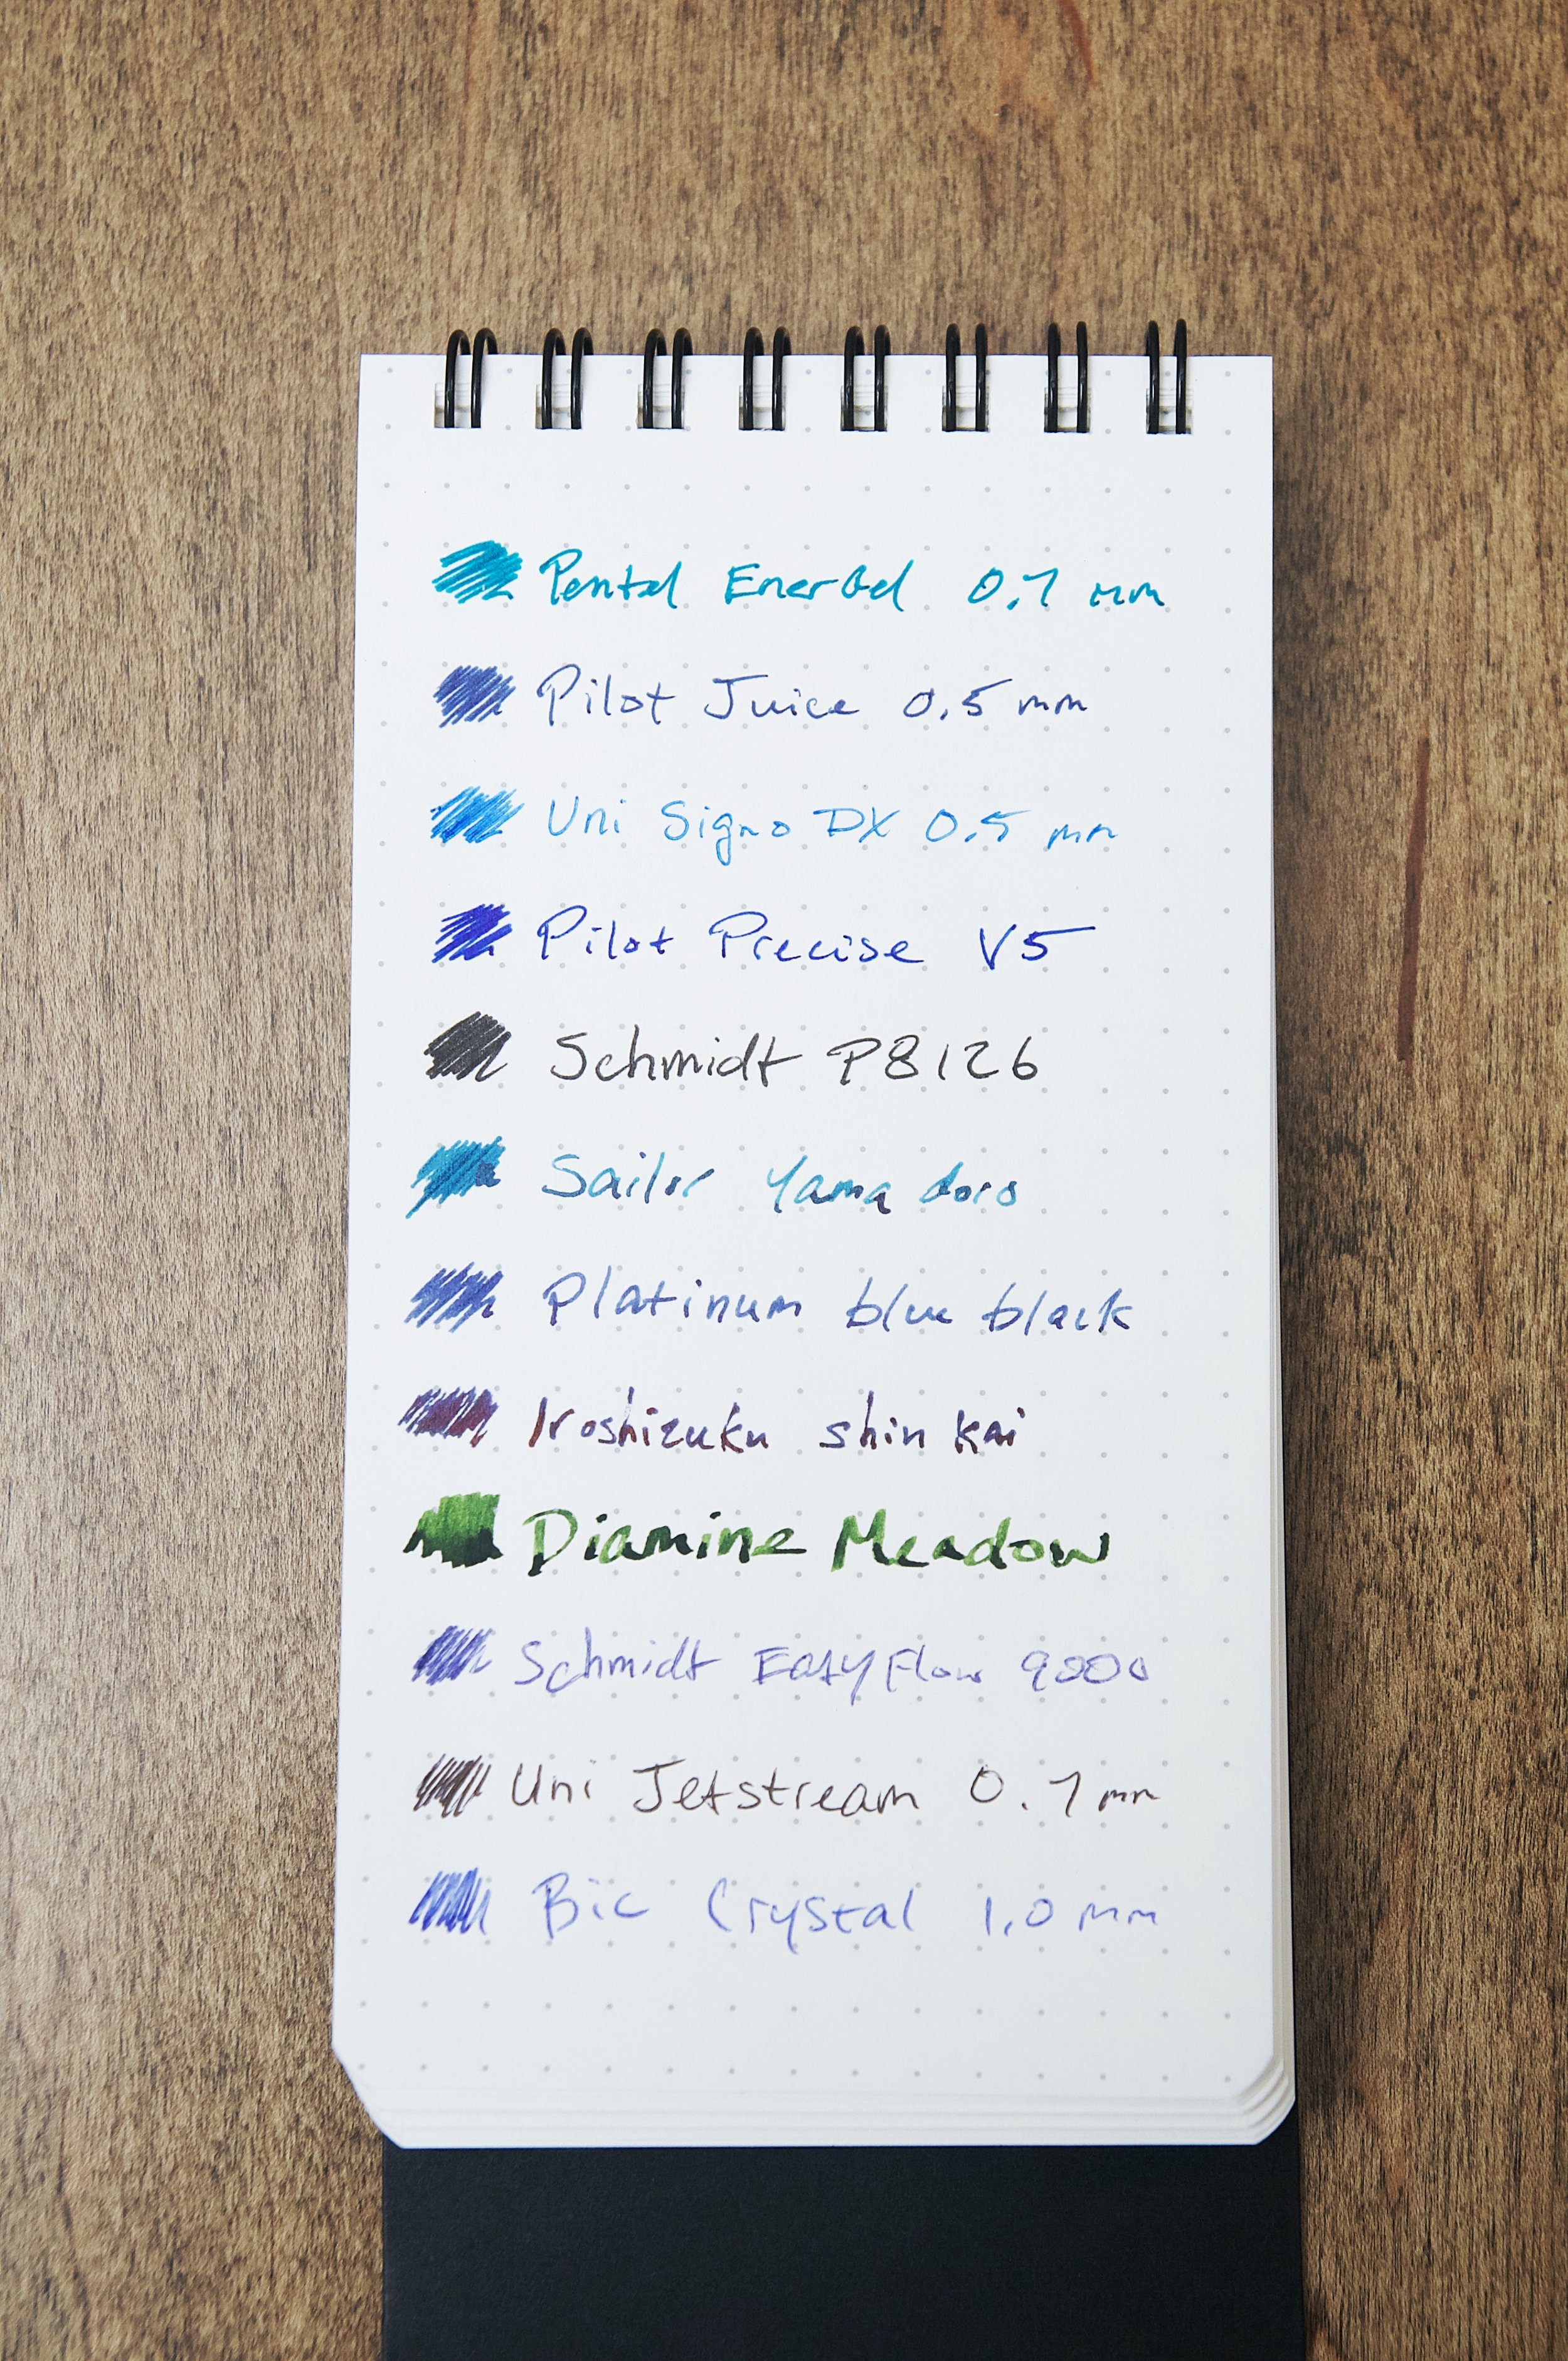 Pentel EnerGel 0.7 mm
Pilot Juice 0.5 mm
Uni Signo DX 0.5 mm
Pilot Precise V5
Schmidt P8126
Sailor Yama dori
Platinum blue black
Iroshizuku shin kai
Diamine Meadow
Schmidt EasyFlow 9000
Uni Jetstream 0.7 mm
Bic Crystal 1.0 mm